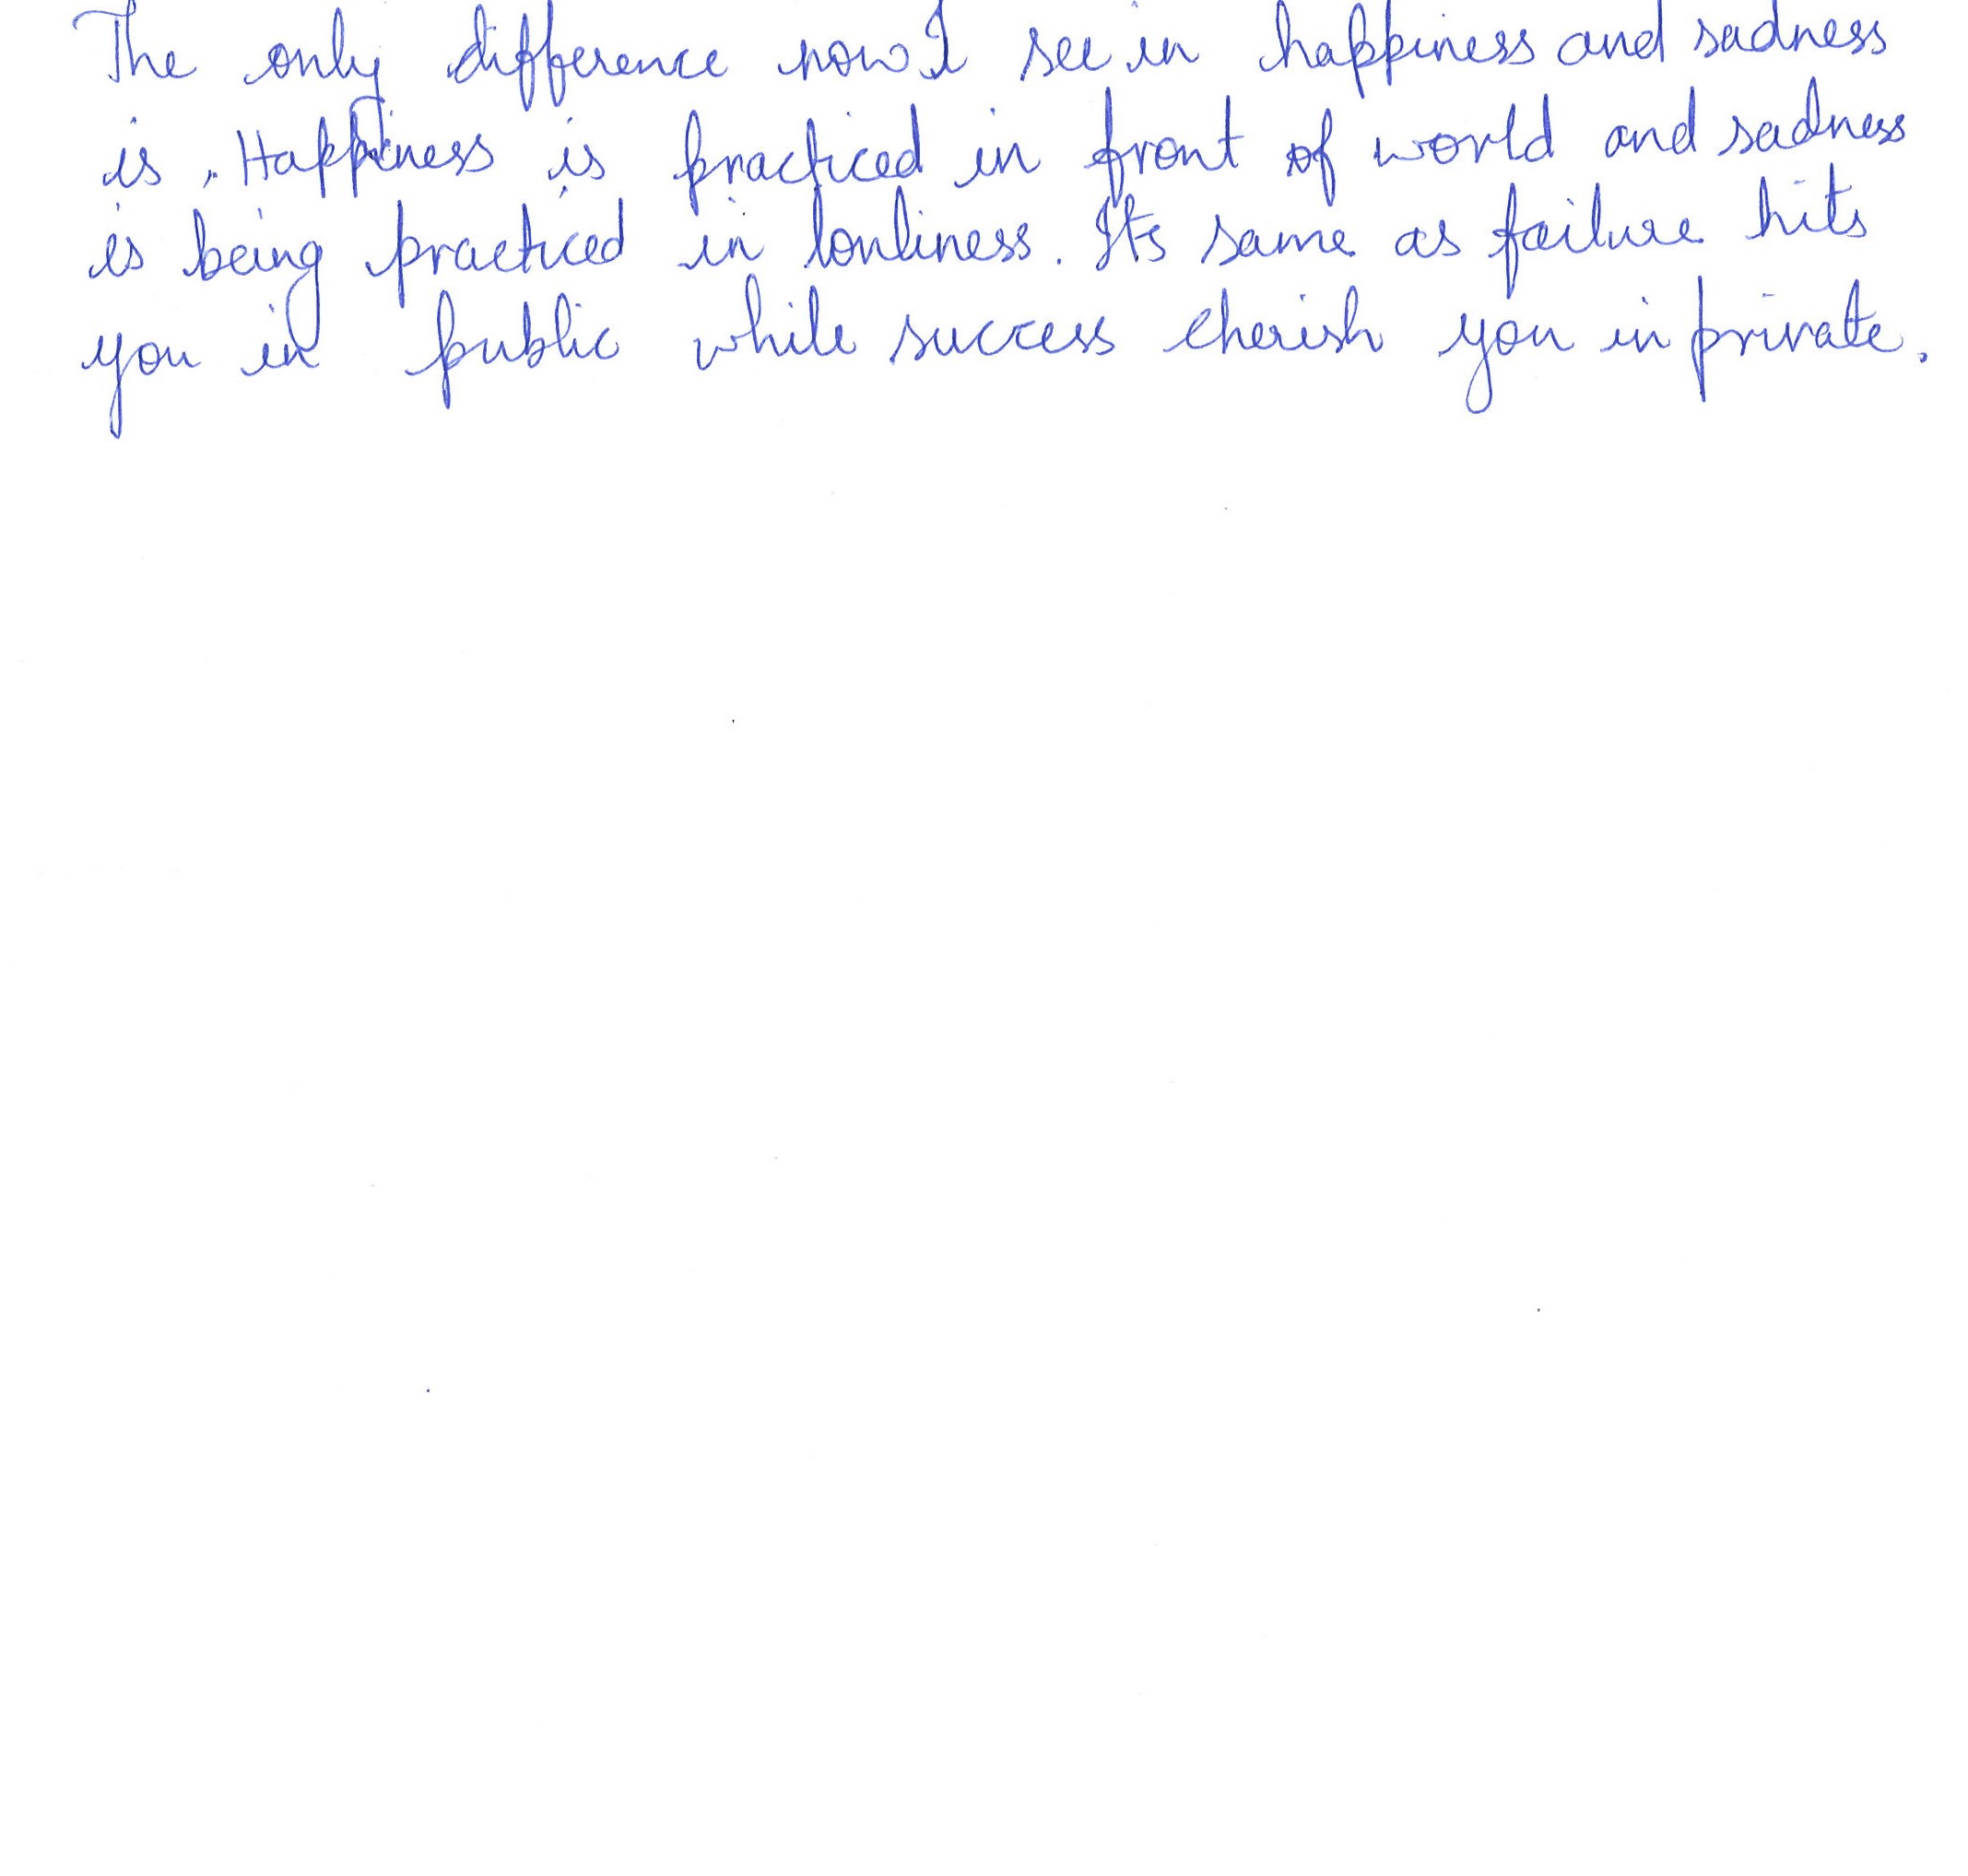 The only difference now I see in happiness and sadness
is, Happiness is practiced in front of world and sadness
is being practiced in lonliness. Its same as failure hits
you in public while success cherish you in private.